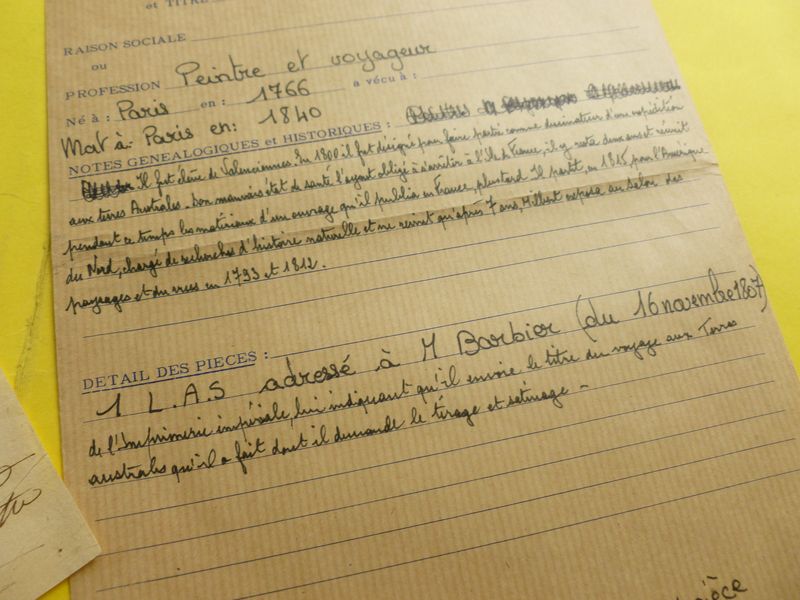 et TITRE
RAISON SOCIALE
ou
PROFESSION Peintre et voyageur
Né à : Paris en : 1766 a vécu à :
Mort à Paris en: 1840
NOTES GENEALOGIQUES et HISTORIQUES :
Il fut élève de Valenciennes. En 1800 il fut désigné pour faire partie comme dessinateur d'une expédition
aux terres Australes. Son mauvais état de santé l'ayant obligé à s'arrêter à l'île de France, il y resta deux ans et réunit
pendant ce temps les matériaux d'un ouvrage qu'il publia en France, plus tard il partit, en 1815 pour l'Amérique
du Nord, chargé de recherches d'histoire naturelle et ne revint qu'après 7 ans, Milbert exposa au Salon des
paysages et des vues en 1793 et 1812.
DETAIL DES PIECES :
1 L.A.S adressé à M Barbier (du 16 novembre 1807)
de l'Imprimerie impériale, lui indiquant qu'il envoie le titre du voyage aux Terres
australes qu'il a fait dont il demande le tirage et satinage -
pièce